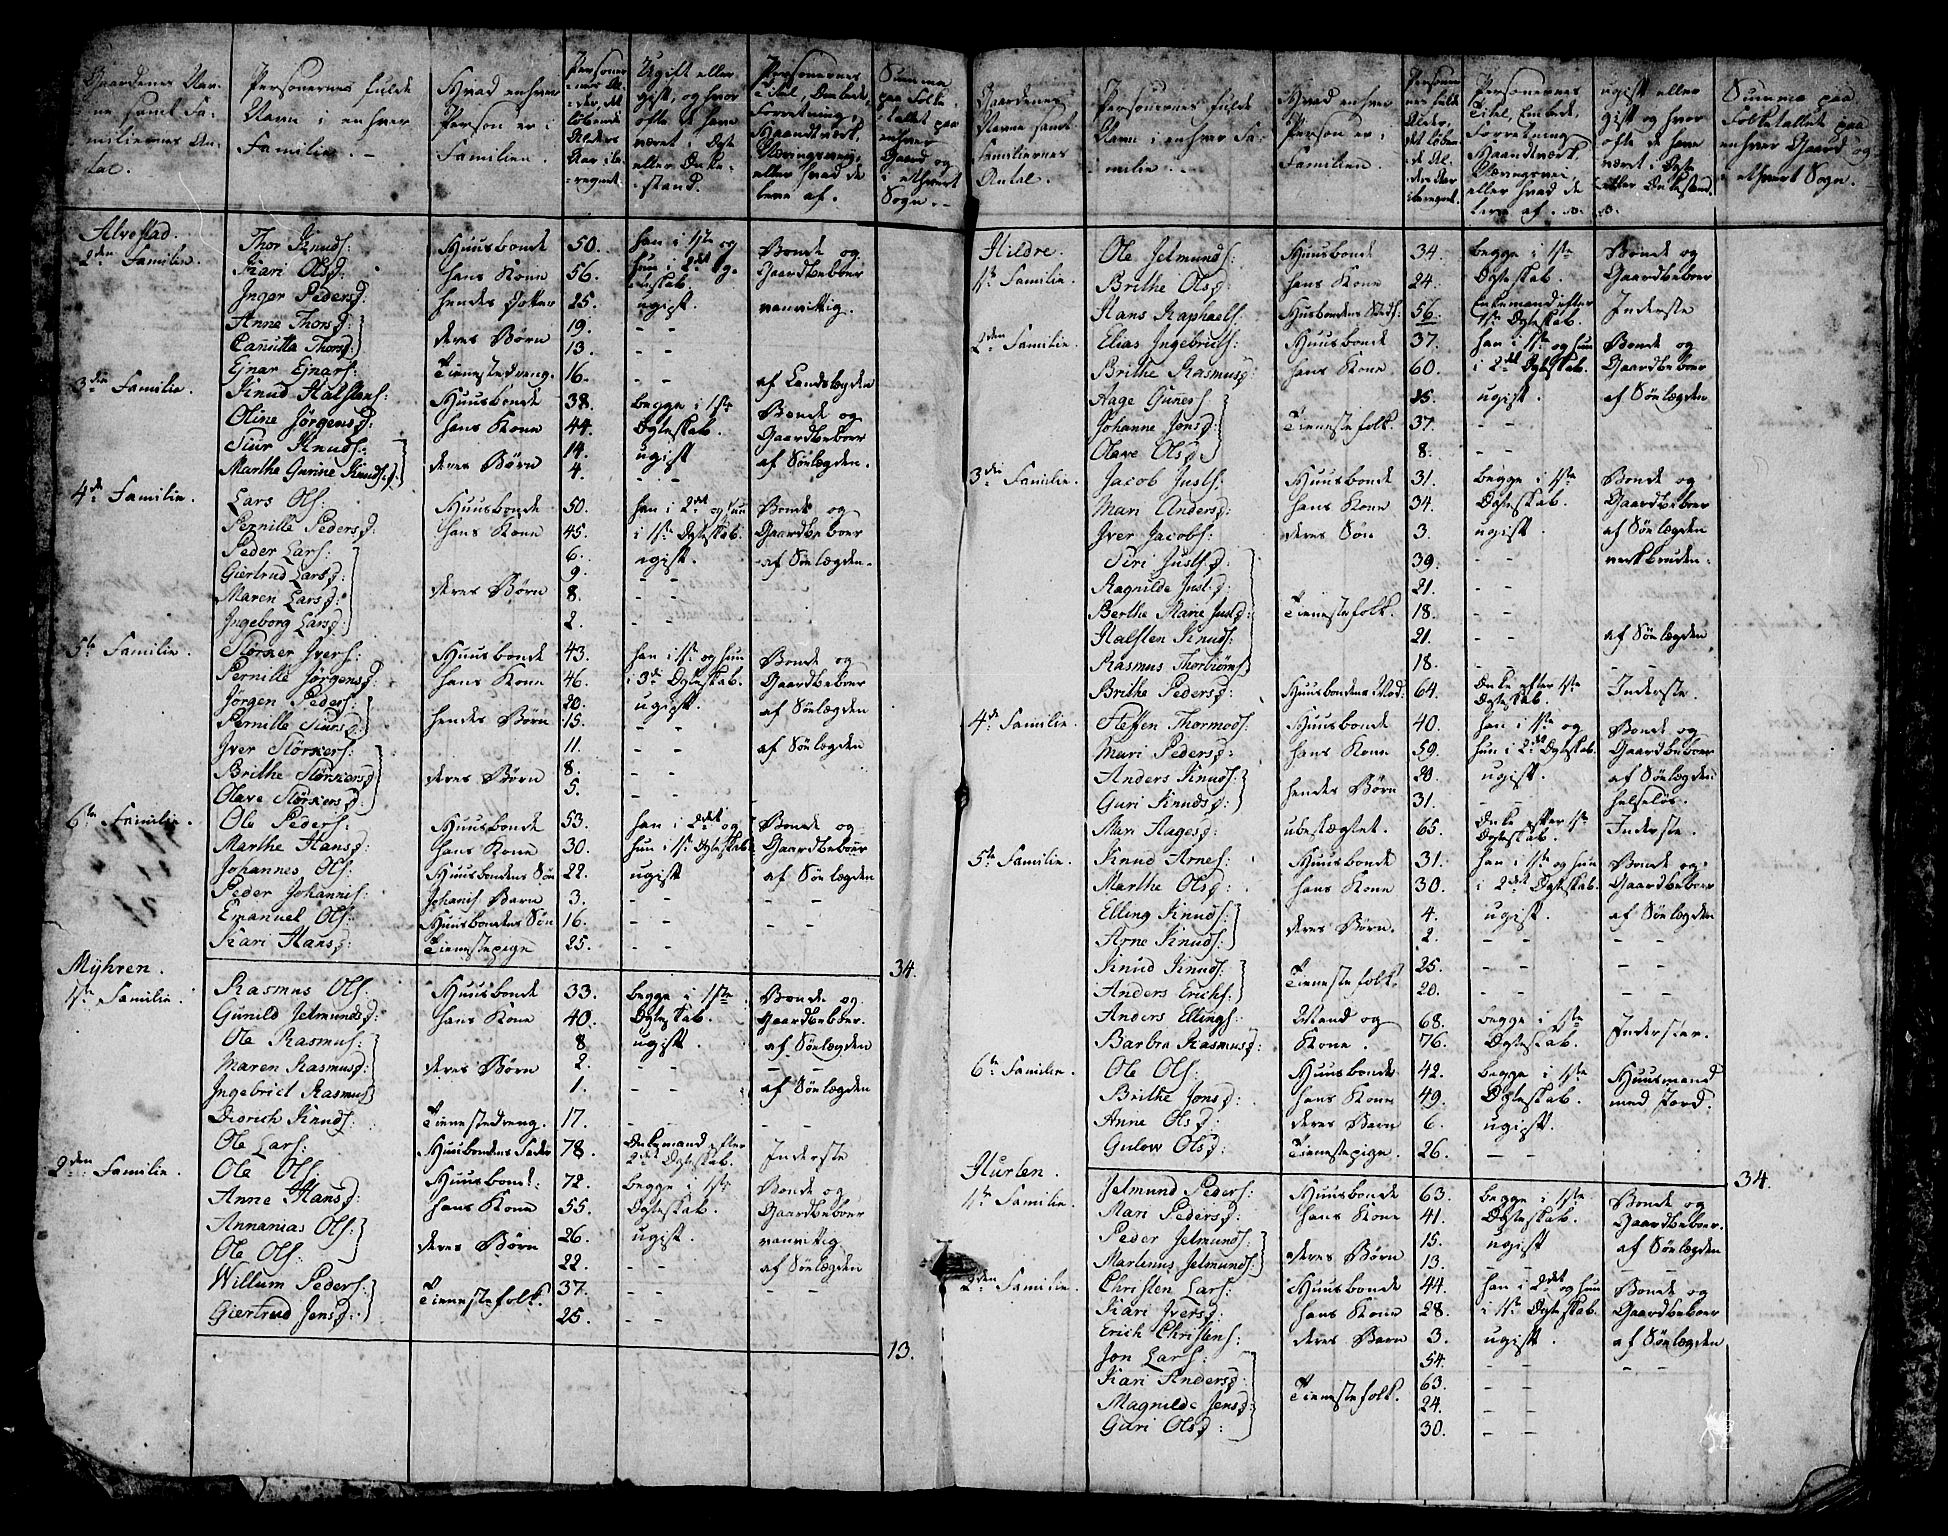 Gaardenes Nav-
ne samt Fa-
miliernes An-
tal.
Personernes fulde
Navn i enhver
Familie. -
Hvad enhver
Person er i
Familien.
Ugift eller
gift, og hvor
ofte de have
været i Ægte
eller Enke-
stand.
Personernes
Titel, Embede,
Forretning,
Haandværk,
Næringsvei,
eller hvad de
leve af.
Summa
paa Folke-
tallet paa
enhver
Gaard og
i ethvert
Sogn. -
Alvestad
2den Familie.
Thor Knuds: Huusbonde 50. han i 1ste og Bonde og
Kari Olsd: hans Kone 56. hun i 2det Æg- Gaardbeboer
Inger Pedersd: hendes Dotter 25. ugift. vanvittig.
Anne Thorsd: 19. - -
Canutta Thorsd: deres Børn 13. - -
Ejnar Ejnars: Tienestedreng. 16. - - af Landlægden
3die Familie. Knud Halstens: Huusbonde 38. begge i 1ste Bonde og
Oline Jørgensd: hans Kone 44. Ægteskab. Gaardbeboer
Siur Knuds: 14. ugift af Sönlægden.
Marthe Gurine Knudsd: deres Børn 4. - -
4de Familie. Lars Ols: Huusbonde 50. han i 2det og hun Bonde og
Pernille Pedersd: hans Kone 45. i 1ste Ægteskab. Gaardbeboer
Peder Lars: 6. ugift. af Sönlægden.
Giertrud Larsd: 9. - -
Maren Larsd: deres Børn 8. - -
Ingeborg Larsd: 2. - -
5te Familie. Störker Ivers: Huusbonde 43. han i 1ste og hun Bonde og
Pernille Jörgensd: hans Kone 46. i 3die Ægteskab. Gaardbeboer
Jörgen Peders: 20. ugift. af Sönlægden
Pernille Siursd: hendes Børn 15. - -
Iver Störkers: 11. - - af Sönlægden
Brithe Störkersd: deres Børn 8. - -
Olave Störkersd: 5. - -
6te Familie. Ole Peders: Huusbonde 53. han i 2det og Bonde og
Marthe Hansd: hans Kone 30. hun i 1ste Ægteskab. Gaardbeboer
Johannes Ols: Huusbondens Sön 22. ugift af Sönlægden
Peder Johannis: Johanis Barn 3. - - - -
Emanuel Ols: Huusbondens Sön 16. - -
Kari Hansd: Tienestepige 25. - -
34.
Myhren.
1ste Familie. Rasmus Ols: Huusbonde 33. begge i 1ste Bonde og
Gunild Jetmundsd: hans Kone 40. Ægteskab. Gaardbeboer.
Ole Rasmus: 8 ugift. af Sönlægden
Maren Rasmusd: deres Børn 2. - - - -
Ingebrict Rasmus: 1. - - af Sönlægden
Didrich Knuds: Tienestedreng. 17. - - - -
Ole Lars: Huusbondens Fader 78. Enkemand efter 2det Ægteskab. Inderste
2den Familie. Ole Ols: Huusbond: 72. begge i 1ste Bonde og
Anne Hansd: hans Kone 55. Ægteskab. Gaardbeboer
Annanias Ols: 26. ugift. vanvittig
Ole Ols: deres Børn 22. - - af Sönlægden
Willum Peders: 37. - - - -
Giertrud Jensd: Tienestefolk. 25. - -
13.
Gaardenes
Navne samt
Familiernes
Antal.
Personernes fulde
Navn i enhver Fa-
milie. -
Hvad enhver
Person er i
Familien.
Personernes
Titel, Embede,
Forretning
Haandværk,
Næringsvei,
eller hvad de
leve af.
ugift eller
gift og hvor
ofte de have
været i Ægte
eller Enkestand.
Summa paa
Folketallet paa
enhver Gaard og
ethvert Sogn.
Hildre.
1ste Familie. Ole Jetmunds: Huusbonde 34. begge i 1ste Bonde og
Brithe Olsd: hans Kone 24. Ægteskab. Gaardbeboer
Hans Raphaels: 56. Enkemand efter 1ste Ægteskab. Inderste
2den Familie. Elias Ingebrits: Huusbonde 37. han i 1ste og hun Bonde og
Brithe Rasmusd: hans Kone 60. i 2det Ægteskab. Gaardbeboer
Aage Guners: 25. ugift. af Sönlægden
Johanne Jonsd: Tienestefolk. 37. - -
Olave Olsd: 8. - -
3die Familie. Jacob Justs: Huusbonde 31. begge i 1ste Bonde og
Mari Andersd: hans Kone 34. Ægteskab. Gaardbeboer
Iver Jacobs: deres Sön 3. ugift. af Sönlægden
Siri Justsd: 39. - - verkbruden.
Ragnilde Justd: 21. - -
Berthe Marie Justd: Tienestefolk. 18. - -
Halsten Knuds: 21. - - af Sönlægden
Rasmus Thorbiörns: 18. - - - -
Brithe Pedersd: Huusbondens Mod: 64. Enke efter 1ste Ægteskab. Inderste.
4de Familie. Steffen Thormods: Huusbonde 40. han i 1ste og Bonde og
Mari Pedersd: hans Kone 59. hun i 2det Ægteskab. Gaardbeboer
Anders Knuds: 20. ugift. af Sönlægden.
Guri Knudsd: hendes Börn 31. - - helselös.
Mari Aagesd: ubeslægtet. 65. Enke efter 1ste Ægteskab. Inderste.
5te Familie. Knud Arnes: Huusbonde 31. han i 1ste og hun Bonde og
Marthe Olsd: hans Kone 30. i 2det Ægteskab. Gaardbeboer
Elling Knuds: 4. ugift. af Sönlægden
Arne Knuds: deres Børn. 2. - - - -
Knud Knuds: 25. - - - -
Anders Erichs: Tienestefolk. 20. - - - -
Anders Ellings: Mand og 68. begge i 1ste Inderster.
Barbra Rasmusd: Kone. 76. Ægteskab.
6te Familie. Ole Ols: Huusbonde 42. begge i 1ste Huusmand
Brithe Jonsd: hans Kone 49. Ægteskab. med Jord.
Anne Olsd: deres Barn 6. ugift.
Gulow Olsd: Tienestepige. 26. - -
34.
Hurlen.
1ste Familie. Jetmund Peders: Huusbonde 63. begge i 1ste Bonde og
Mari Pedersd: hans Kone 41. Ægteskab. Gaardbeboer.
Peder Jetmunds: 15. ugift af Sönlægden
Martinus Jetmunds: deres Børn 13. - - - -
2den Familie. Christen Lars: Huusbonde 44. han i 2det og hun Bonde og
Kari Iversd: hans Kone 28. i 1ste Ægteskab. Gaardbeboer
Erich Christens: deres Barn 3. ugift. af Sönlægden
Jon Lars: 54. - - - -
Kari Andersd: 63. - -
Magnilde Jensd: Tienestefolk. 24. - -
Guri Olsd: 30. - -